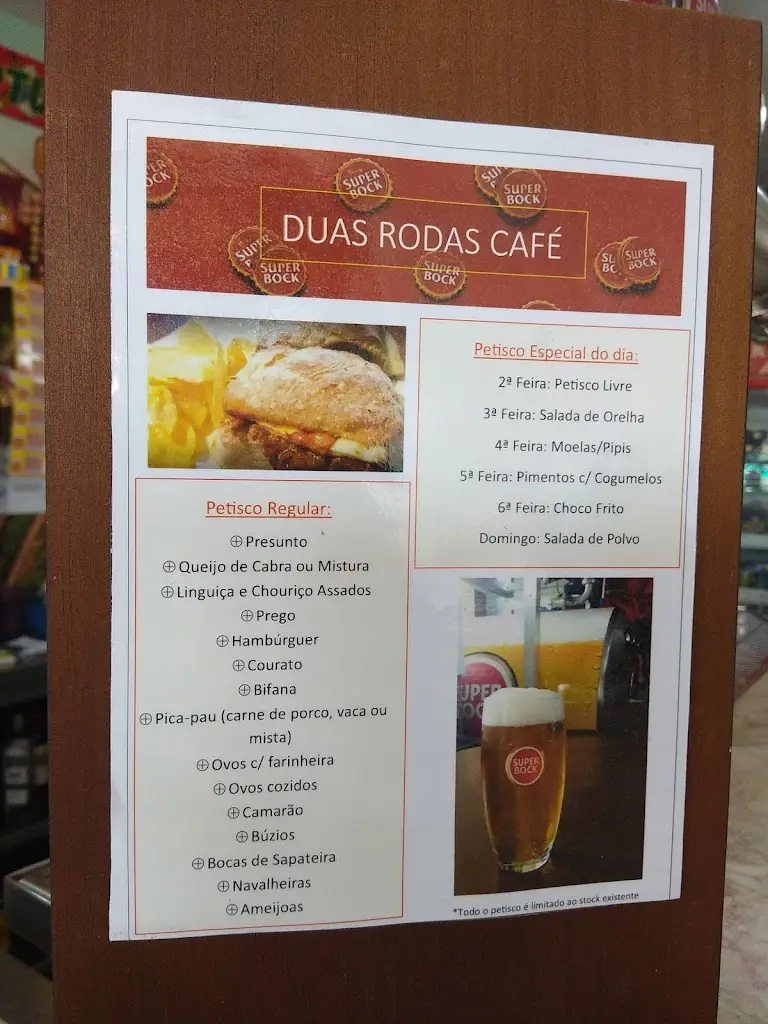 SUPER BOCK
SUPER BOCK
SUPER BOCK
SUPER BOCK
SUPER BOCK
DUAS RODAS CAFÉ
Petisco Especial do dia:
2ª Feira: Petisco Livre
3ª Feira: Salada de Orelha
4ª Feira: Moelas/Pipis
5ª Feira: Pimentos c/ Cogumelos
6ª Feira: Choco Frito
Domingo: Salada de Polvo
Petisco Regular:
⊕ Presunto
⊕ Queijo de Cabra ou Mistura
⊕ Linguiça e Chouriço Assados
⊕ Prego
⊕ Hambúrguer
⊕ Courato
⊕ Bifana
⊕ Pica-pau (carne de porco, vaca ou
mista)
⊕ Ovos c/ farinheira
⊕ Ovos cozidos
⊕ Camarão
⊕ Búzios
⊕ Bocas de Sapateira
⊕ Navalheiras
⊕ Ameijoas
SUPER
BOCK
*Todo o petisco é limitado ao stock existente